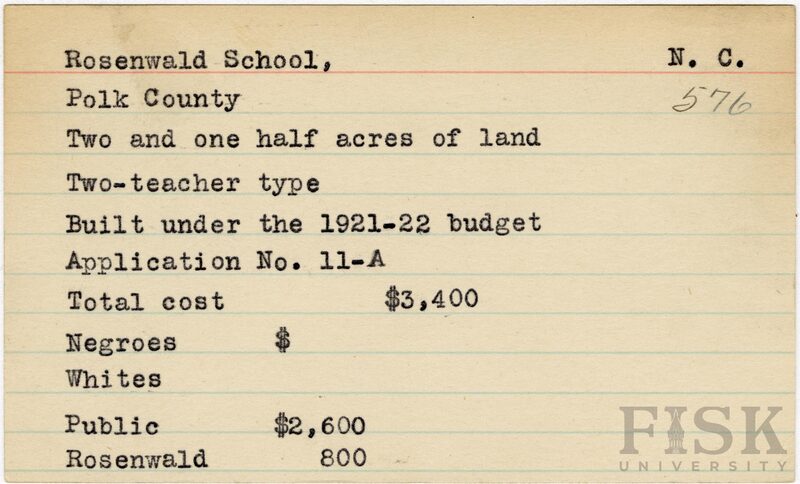 Rosenwald School, N. C.
Polk County 576
Two and one half acres of land
Two-teacher type
Built under the 1921-22 budget
Application No. 11-A
Total cost $3,400
Negroes $
Whites
Public $2,600
Rosenwald 800
FISK
UNIVERSITY